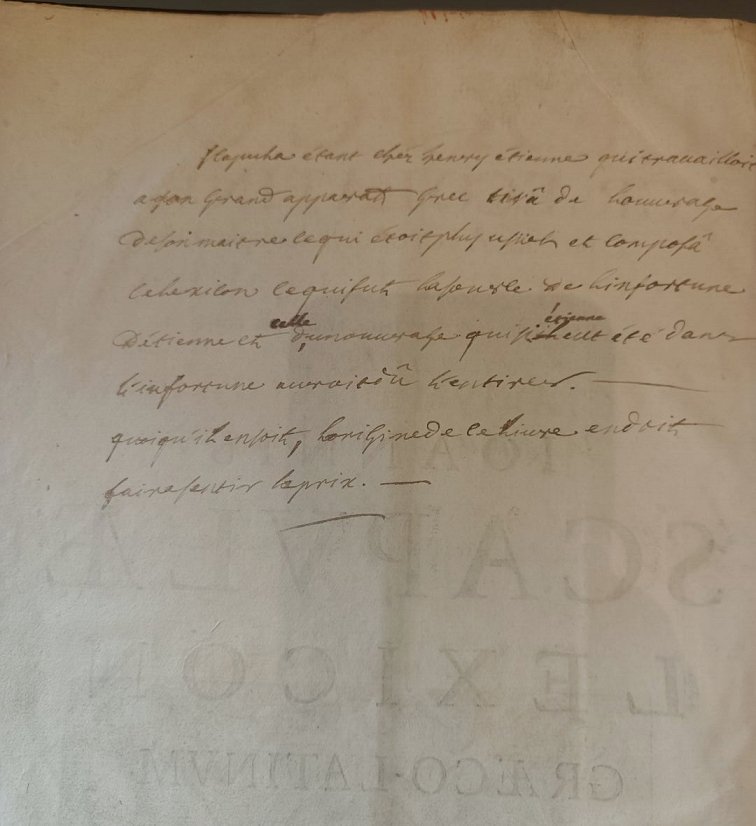 Scapula étant chéz henry étienne qui travailloit
a son Grand apparat Grec tira de l'ouvrage
de son maitre ce qui étoit plus usité et composa
ce lexicon ce qui fut la source de l'infortune
D'étienne et celle d'un ouvrage qui s'il étienne eut été dans
l'infortune auroit dû l'en tirer. —
quoiqu'il en soit, l'origine de ce livre en doit
faire sentir le prix. —
IOAN
SCAPVLÆ
LEXICON
GRÆCO-LATINVM